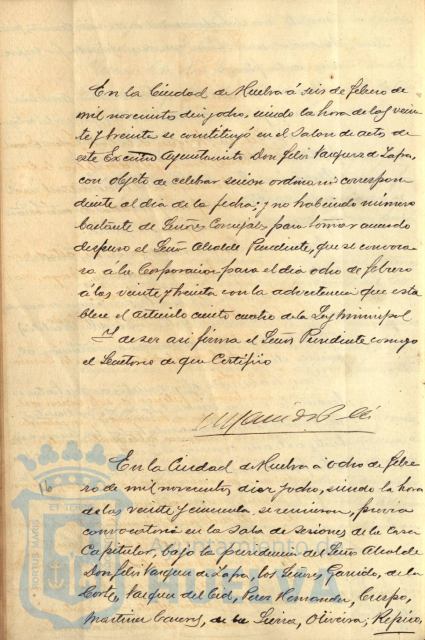 En la Ciudad de Huelva á seis de febrero de
mil novecientos diez y ocho, siendo la hora de las vein
te y treinta se constituyó en el Salon de actos de
este Excmo Ayuntamiento Don Felix Vazquez de Zafra,
con objeto de celebrar sesion ordinaria correspon
diente al dia de la fecha; y no habiendo número
bastante de Señores Concejales para tomar acuerdo
dispuso el Señor Alcalde Presidente, que se convoca
ra á la Corporacion para el dia ocho de febrero
á las veinte y treinta con la advertencia que esta
blece el articulo ciento cuatro de la Ley Municipal
Y de ser asi firma el Señor Presidente conmigo
el Secretario de que Certifico
16
En la Ciudad de Huelva á ocho de febre
ro de mil novecientos diez y ocho, siendo la hora
de las veinte y cincuenta, se reunieron, previa
convocatoria en la Sala de Sesiones de la Casa
Capitular, bajo la presidencia del Señor Alcalde
Don Felix Vazquez de Zafra, los Señores Garrido, de la
Corte, Vazquez del Cid, Perez Hernandez, Crespo,
Martinez de la Sierra, Oliveira, Repiso,
PORTUS MARIS
ET TER
Ayuntamiento